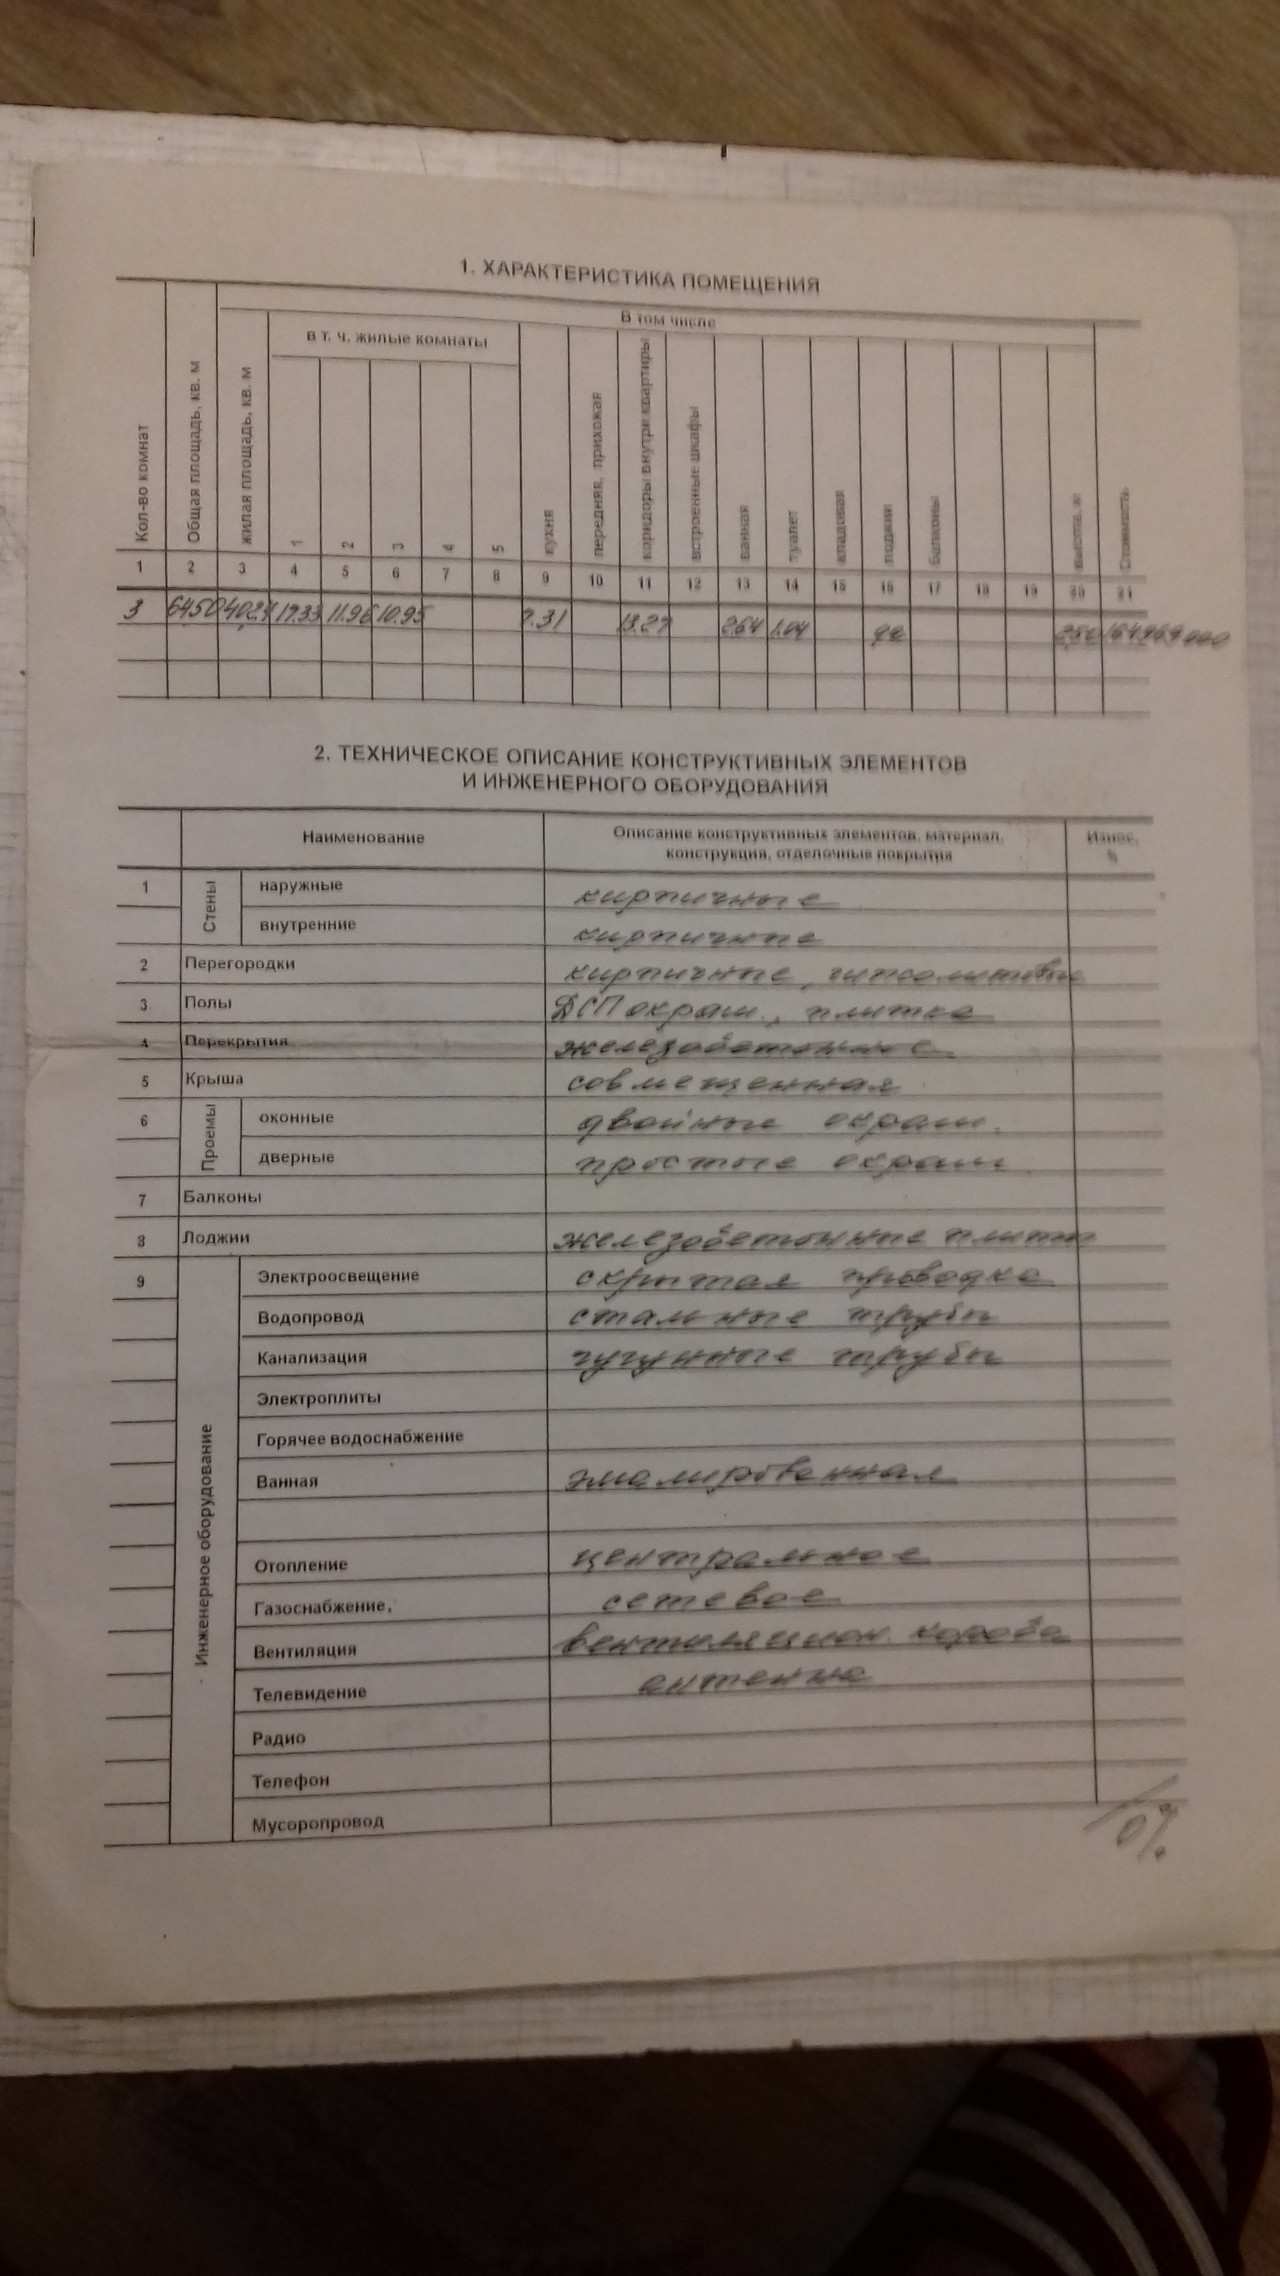 1. ХАРАКТЕРИСТИКА ПОМЕЩЕНИЯ
Кол-во комнат
Общая площадь, кв. м
В том числе
жилая площадь, кв. м
в т. ч. жилые комнаты
1 2 3 4 5
кухня
передняя, прихожая
коридоры внутри квартиры
встроенные шкафы
ванная
туалет
кладовая
лоджии
балконы
высота, м
Стоимость
1 2 3 4 5 6 7 8 9 10 11 12 13 14 15 16 17 18 19 20 21
3 64.50 40.24 17.33 11.96 10.95 7.31 13.27 2.64 1.04
2. ТЕХНИЧЕСКОЕ ОПИСАНИЕ КОНСТРУКТИВНЫХ ЭЛЕМЕНТОВ
И ИНЖЕНЕРНОГО ОБОРУДОВАНИЯ
Наименование Описание конструктивных элементов, материал, конструкция, отделочные покрытия Износ, %
1 Стены наружные кирпичные
внутренние кирпичные
2 Перегородки кирпичные, гипсолитовые
3 Полы ДСП окраш., плитка
4 Перекрытия железобетонные
5 Крыша совмещенная
6 Проемы оконные двойные окраш.
дверные простые окраш
7 Балконы
8 Лоджии железобетонные плиты
9 Инженерное оборудование Электроосвещение скрытая проводка
Водопровод стальные трубы
Канализация чугунные трубы
Электроплиты
Горячее водоснабжение
Ванная эмалированная
Отопление центральное
Газоснабжение, сетевое
Вентиляция вентиляцион. короба
Телевидение антенна
Радио
Телефон
Мусоропровод
0%